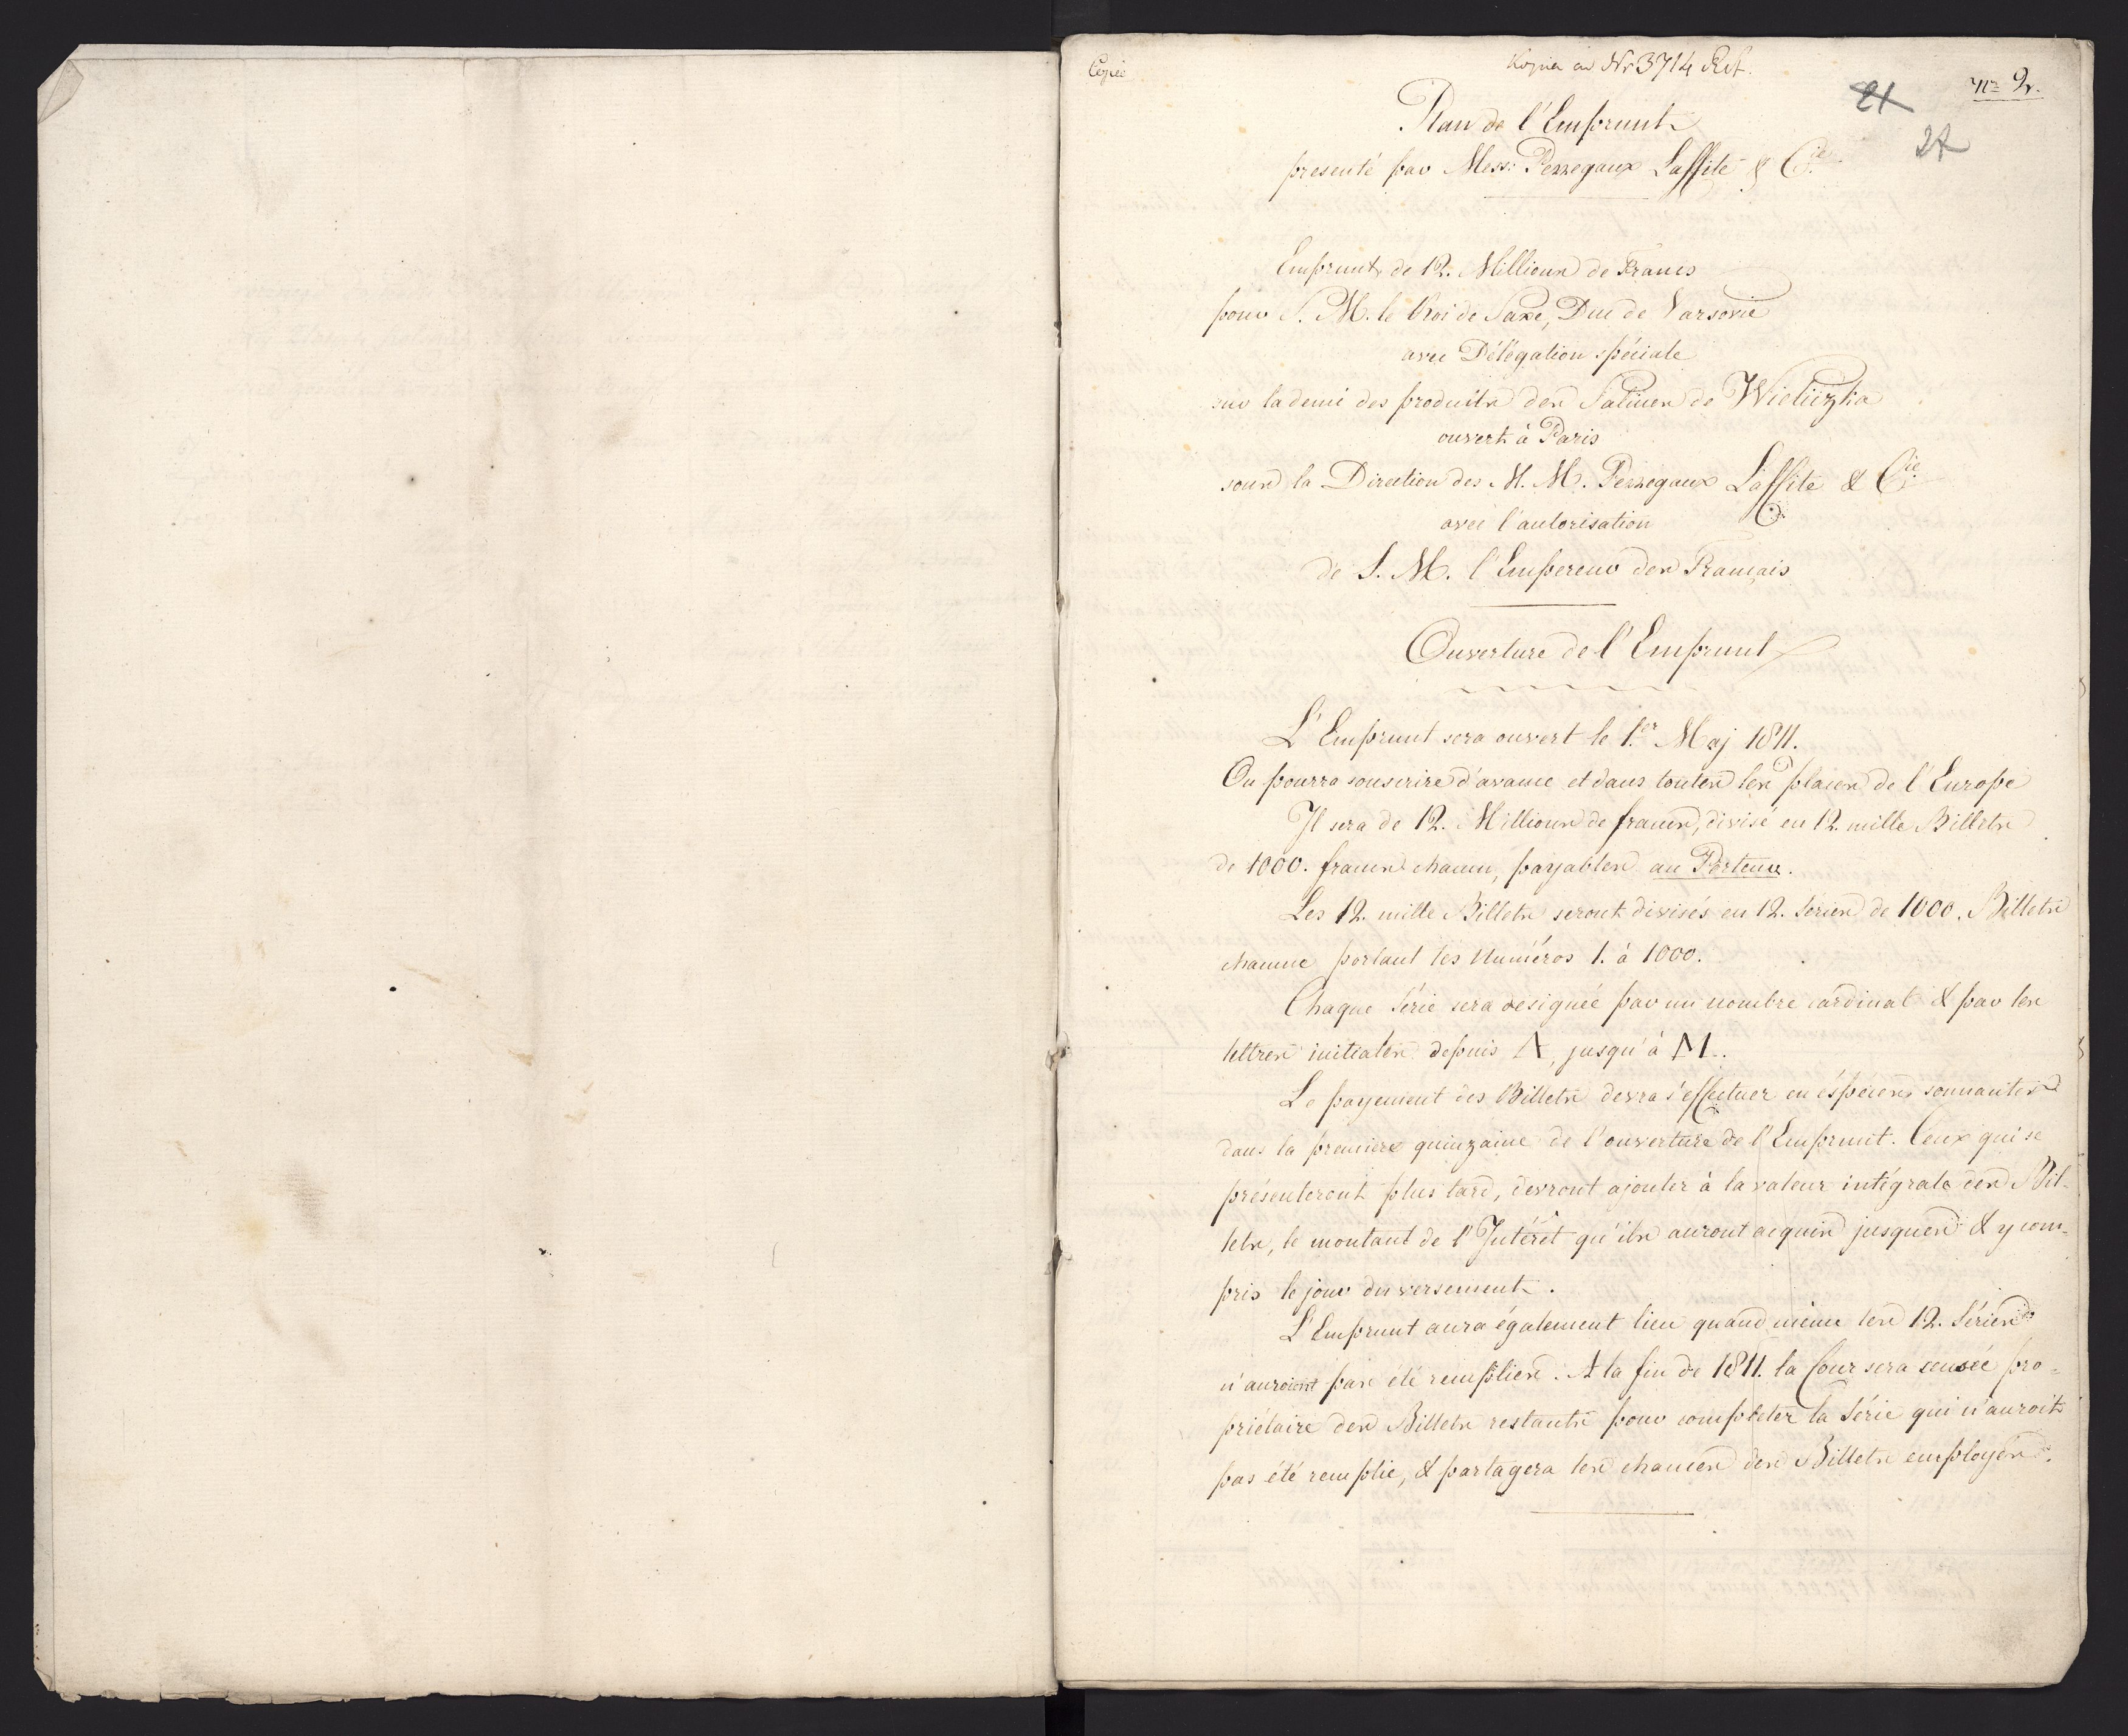 Copie
Kopia ad Nr 3714 Rst.
nro 2.
21
27
Plan de l'Emprunt
presenté par Mess: Perregaux Laffite & Cie
Emprunt de 12. Millions de Francs
pour S. M. le Roi de Saxe, Duc de Varsovie
avec Délégation spéciale
sur la demi des produits des Salines de Wieliczka
ouvert à Paris
sous la Direction des M. M. Perregaux Laffite & Cie
avec l'autorisation
de S. M. l'Empereur des Français
Ouverture de l'Emprunt
L'Emprunt sera ouvert le 1.er Maj 1811.
On pourra souscrire d'avance et dans toutes les places de l'Europe
Il sera de 12. Millions de francs, divisé en 12. mille Billets
de 1000. francs chacun, payables au Porteur.
Les 12. mille Billets seront divisés en 12. Séries de 1000. Billets
chacune portant les Numéros 1. à 1000.
Chaque Série sera designée par un nombre cardinal & par les
lettres initiales depuis A, jusqu'à M.
Le payement des Billets devra s'effectuer en éspèces sonnantes
dans la premiere quinzaine de l'ouverture de l'Emprunt. Ceux qui se
présenteront plus tard, devront ajouter à la valeur intégrale des Bil-
lets, le montant de l'Intérêt qu'ils auront acquis jusques & y com-
pris le jour du versement.
L'Emprunt aura également lieu quand même les 12. Séries
n'auroient pas été remplies. A la fin de 1811. la Cour sera censée pro-
priétaire des Billets restants pour completer la Série qui n'auroit
pas été remplie, & partagera les chances des Billets employés.